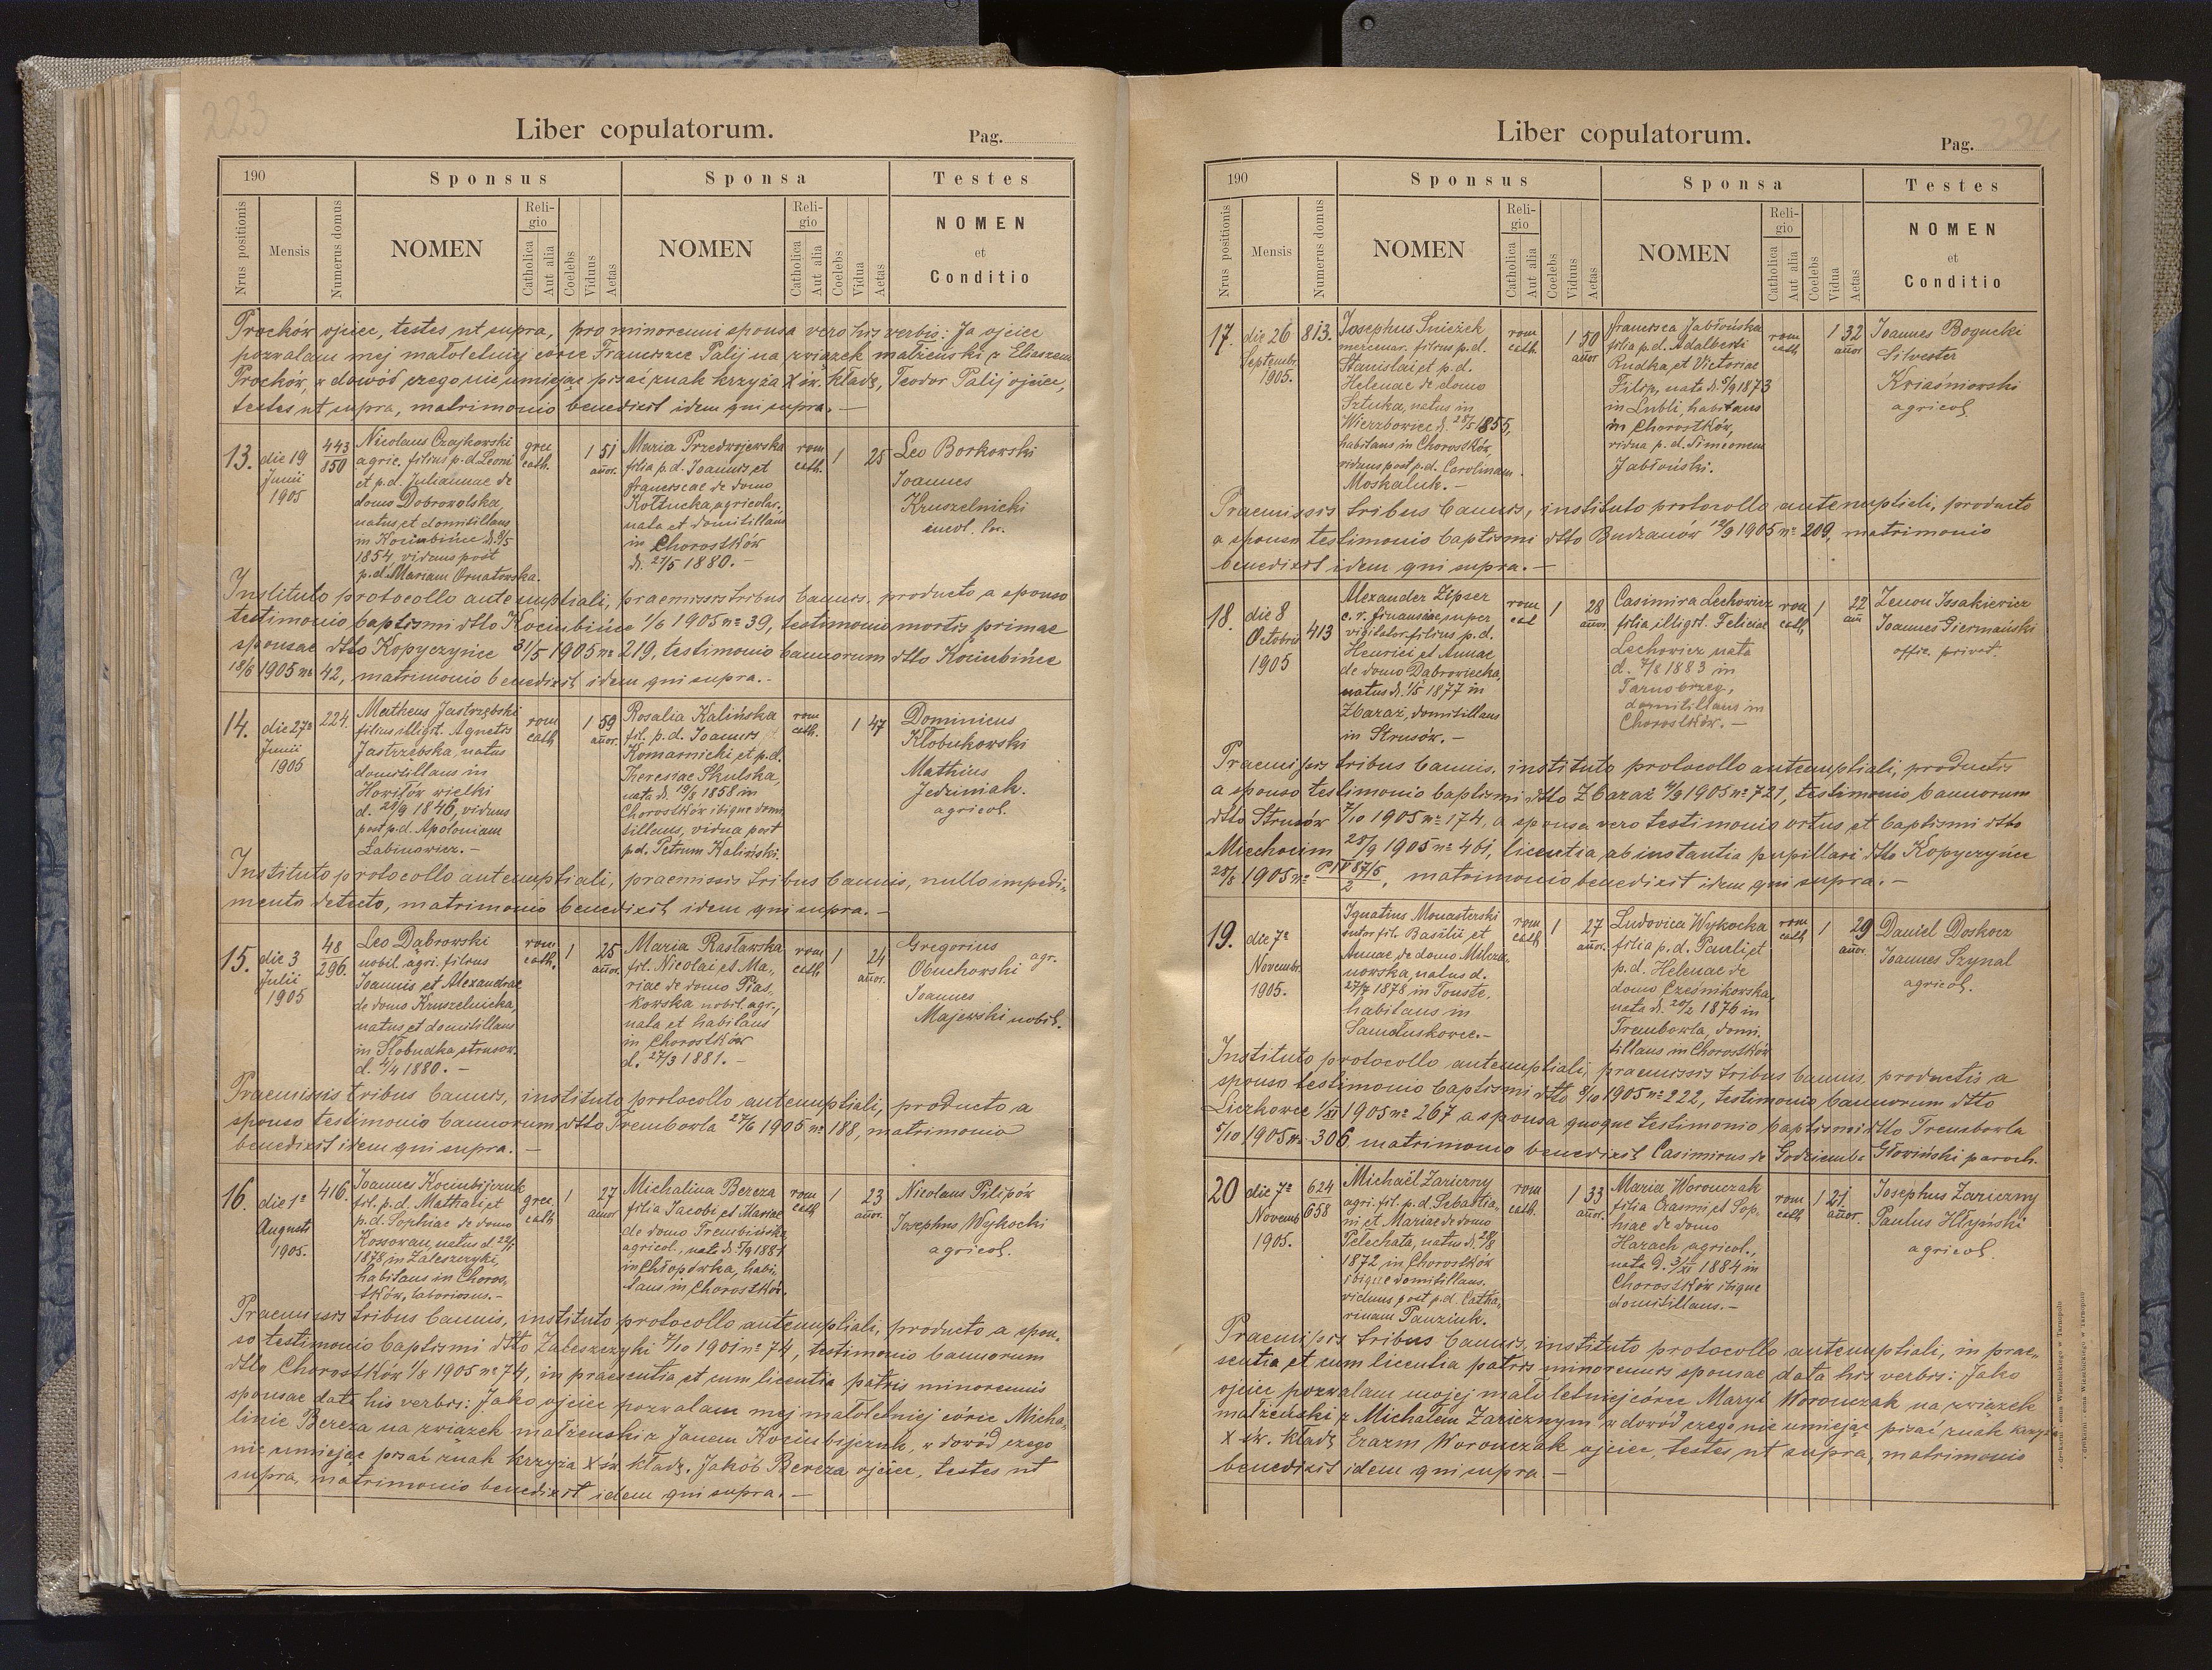 223
Liber copulatorum.
Pag.
190
Sponsus
Sponsa
Testes
Nrus positionis
Mensis
Numerus domus
NOMEN
Religio
Catholica
Aut alia
Coelebs
Viduus
Aetas
NOMEN
Religio
Catholica
Aut alia
Coelebs
Vidua
Aetas
NOMEN
et
Conditio
Proćków ojciec, testes ut supra, pro minorenni sponsa vero his verbis: Ja ojciec
pozwalam mej małoletniej córce Franciszce Palij na związek małżeński z Eliaszem
Proćków, w dowód czego nie umiejąc pisać znak krzyża X św. kładę, Teodor Palij ojciec,
testes ut supra, matrimonio benedixit idem qui supra. —
13.
die 19
Junii
1905
443
850
Nicolaus Czajkowski
agric. filius p.d. Leonis
et p.d. Julianae de
domo Dobrowolska,
natus et domitillans
in Kociubińce d. 9/5
1854, viduus post
p.d. Mariam Ornatowska.
grec
cath.
1
51
annor.
Maria Przedwojewska
filia p.d. Joannis et
Franciscae de domo
Kołtucka, agricolar.,
nata et domitillans
in Chorostków
d. 27/5 1880. —
rom
cath.
1
25
Leo Borkowski
Joannes
Kruszelnicki
incol. loc.
Instituto protocollo antenuptiali, praemissis tribus bannis, producto a sponso
testimonio baptismi dtto Kociubińce 1/6 1905 nº 39, testimonio mortis primae
sponsae dtto Kopyczyńce 31/5 1905 nº 219, testimonio bannorum dtto Kociubińce
18/6 1905 nº 42, matrimonio benedixit idem qui supra. —
14.
die 27ª
Junii
1905
224.
Matheus Jastrzębski
filius illigit. Agnetis
Jastrzębska, natus
domitillans in
Howiłów wielki
d. 20/9 1846, viduus
post p.d. Apoloniam
Łabinowicz. —
rom
cath
1
59
annor.
Rosalia Kalińska
fil. p.d. Joannis
Komarnicki et p.d.
Theresiae Skulska,
nata d. 19/8 1858 in
Chorostków ibique domi
tillans, vidua post
p.d. Petrum Kaliński.
rom
cath.
1
47
Dominicus
Kłobukowski
Mathius
Jedzniak.
agricol.
Instituto protocollo antenuptiali, praemissis tribus bannis, nullo impedi-
mento detecto, matrimonio benedixit idem qui supra. —
15.
die 3
Julii
1905
48
296.
Leo Dąbrowski
nobil. agri. filius
Joannis et Alexandrae
de domo Kruszelnicka,
natus et domitillans
in Słobudka strusow.
d. 4/4 1880. —
rom
cath.
1
25
annor.
Maria Rasławska
fil. Nicolai et Ma-
riae de domo Pias-
kowska nobil. agr.,
nata et habitans
in Chorostków
d. 27/3 1881. —
rom
cath
1
24
annor.
Gregorius
Obuchowski agr.
Joannes
Majewski nobil.
Praemissis tribus bannis, instituto protocollo antenuptiali, producto a
sponso testimonio bannorum dtto Trembowla 27/6 1905 nº 188, matrimonio
benedixit idem qui supra. —
16.
die 1ª
Augusti
1905.
416.
Joannes Kociubijczuk
fil. p.d. Mathaei et
p.d. Sophiae de domo
Kossowan, natus d. 22/1
1878 in Zaleszczyki,
habitans in Choros-
tków, laboriosus. —
grec
cath
1
27
annor
Michalina Bereza
filia Jacobi et Mariae
de domo Trembińska,
agricol., nata d. 5/9 1881
in Chłopówka, habi-
tans in Chorostków.
rom
cath
1
23
annor.
Nicolaus Pilipów
Josephus Wykocki
agricol.
Praemissis tribus bannis, instituto protocollo antenuptiali, producto a spon-
so testimonio baptismi dtto Zaleszczyki 7/10 1901 nº 74, testimonio bannorum
dtto Chorostków 1/8 1905 nº 74, in praesentia et cum licentia patris minorennis
sponsae data his verbis: Jako ojciec pozwalam mej małoletniej córce Micha-
linie Bereza na związek małżeński z Janem Kociubijczuk, w dowód czego
nie umiejąc pisać znak krzyża X św. kładę. Jakób Bereza ojciec, testes ut
supra, matrimonio benedixit idem qui supra. —
Liber copulatorum.
Pag.
190
Sponsus
Sponsa
Testes
Nrus positionis
Mensis
Numerus domus
NOMEN
Religio
Catholica
Aut alia
Coelebs
Viduus
Aetas
NOMEN
Religio
Catholica
Aut alia
Coelebs
Vidua
Aetas
NOMEN
et
Conditio
17.
die 26
Septembr.
1905.
813.
Josephus Snieżek
mercenar. filius p.d.
Stanislai et p.d.
Helenae de domo
Sztuka, natus in
Wierzbowice d. 28/5 1855,
habitans in Chorostków,
viduus post p.d. Carolinam
Moskaluk. —
rom
cath.
1
50
annor
Francisca Jabłońska
filia p.d. Adalberti
Rudka, et Victoriae
Filip, nata d. 5/9 1873
in Lubli, habitans
in Chorostków,
vidua p.d. Simeonem
Jabłoński.
rom
cath
1
32
annor
Joannes Bogucki
Silvester
Kwiaśniowski
agricol.
Praemissis tribus bannis, instituto protocollo antenuptiali, producto
a sponso testimonio baptismi dtto Budzanów 12/9 1905 nº 209, matrimonio
benedixit idem qui supra. —
18.
die 8
Octobris
1905
413
Alexander Zipser
c.r. financiae super
vigilator filius p.d.
Henrici et Annae
de domo Dąbrowiecka,
natus d. 1/5 1877 in
Zbaraż, domitillans
in Strusów. —
rom
cat
1
28
annor
Casimira Lechowicz
filia illigit. Feliciae
Lechowicz nata
d. 7/8 1883 in
Tarnobrzeg,
domitillans in
Chorostków. —
rom
cath.
1
22
ann
Zenon Issakiewicz
Joannes Giermański
offic. privat.
Praemissis tribus bannis, instituto protocollo antenuptiali, productis
a sponso testimonio baptismi dtto Zbaraż 4/9 1905 nº 721, testimonio bannorum
dtto Strusów 7/10 1905 nº 174, a sponsa vero testimonio ortus et baptismi dtto
Miechocim 20/9 1905 nº 461, licentia ab instantia pupillari dtto Kopyczyńce
20/8 1905 nº P IV 87/5 / 2, matrimonio benedixit idem qui supra. —
19.
die 7ª
Novembr.
1905.
Ignatius Monasterski
sutor fil. Basilii et
Annae de domo Milcza-
nowska, natus d.
27/7 1878 in Touste,
habitans in
Samołuskowce. —
rom
cath
1
27
annor.
Ludovica Wykocka
filia p.d. Pauli et
p.d. Helenae de
domo Cześnikowska,
nata d. 20/2 1876 in
Trembowla, domi-
tillans in Chorostków
rom
cath
1
29
annor.
Daniel Doskocz
Joannes Szynal
agricol.
Instituto protocollo antenuptiali, praemissis tribus bannis, productis a
sponso testimonio baptismi dtto 8/10 1905 nº 222, testimonio bannorum dtto
Liczkowce 1/XI 1905 nº 267 a sponsa quoque testimonio baptismi dtto Trembowla
5/10 1905 nº 306, matrimonio benedixit Casimirus de Godziemba Głowiński paroch.
20
die 7ª
Novemb
1905.
624
658
Michaël Zariczny
agri. fil. p.d. Sebastia-
ni et Mariae de domo
Pelechata, natus d. 28/8
1872, in Chorostków
ibique domitillans.
viduus post p.d. Catha-
rinam Pauziuk.
rom
cath.
1
33
annor.
Maria Woronczak
filia Erasmi et Sop-
hiae de domo
Harach, agricol.,
nata d. 3/XI 1884 in
Chorostków ibique
domitillans. —
rom
cath
1
21
annor.
Josephus Zariczny
Paulus Hłyński
agricol.
Praemissis tribus bannis, instituto protocollo antenuptiali, in prae-
sentia et cum licentia patris minorennis sponsae data his verbis: Jako
ojciec pozwalam mojej małoletniej córce Maryi Woronczak na związek
małżeński z Michałem Zaricznym w dowód czego nie umiejąc pisać znak krzyża
X św. kładę Erazm Woronczak ojciec, testes ut supra, matrimonio
benedixit idem qui supra. —